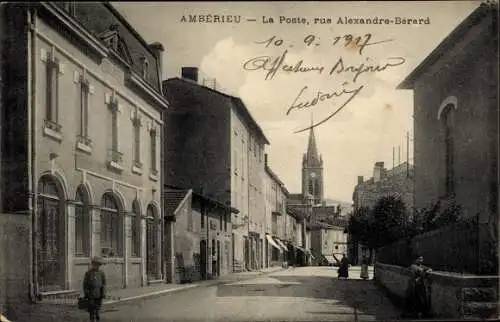 AMBÉRIEU – La Poste, rue Alexandre-Bérard
10. 9. 1917
Affectueux bonjour